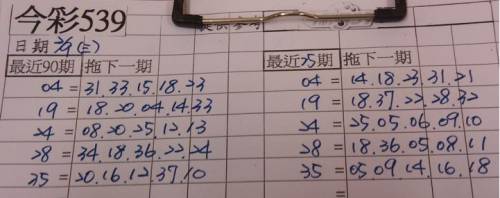 今彩539
日期 3/9 (三)
最近90期 拖下一期
04 = 31.33.15.18.23
19 = 18.20.04.14.33
24 = 08.20.25.12.13
28 = 34.18.36.22.24
35 = 20.16.12.37.10
最近25期 拖下一期
04 = 14.18.23.31.21
19 = 18.37.22.28.32
24 = 25.05.06.09.10
28 = 18.36.05.08.11
35 = 05.09.14.16.18
=